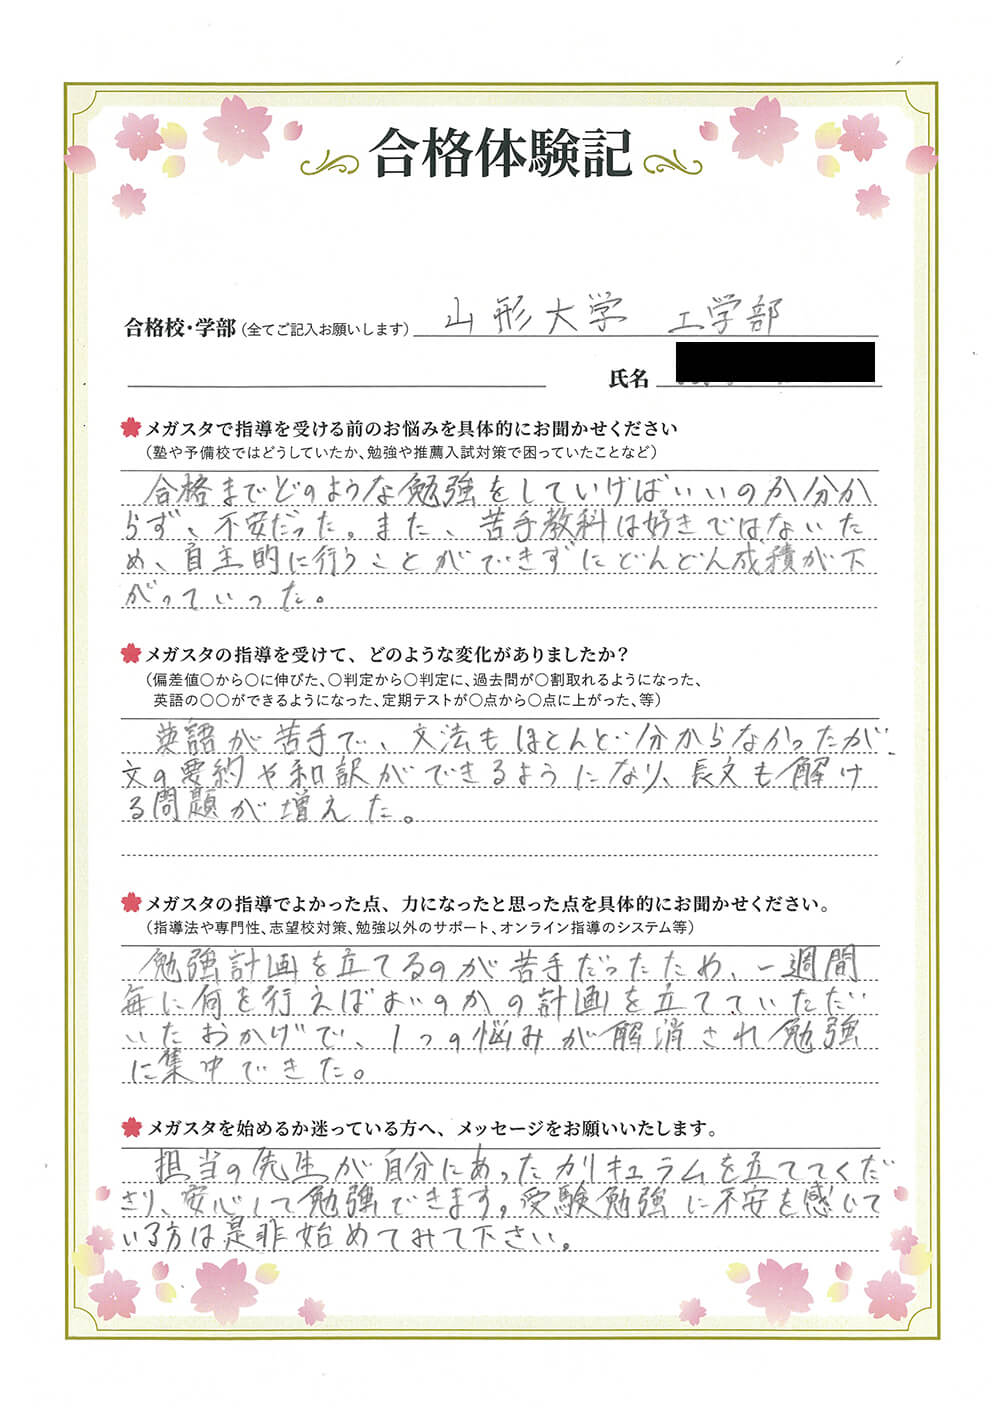 合格体験記
合格校・学部(全てご記入お願いします) 山形大学 工学部
氏名
メガスタで指導を受ける前のお悩みを具体的にお聞かせください
(塾や予備校ではどうしていたか、勉強や推薦入試対策で困っていたことなど)
合格までどのような勉強をしていけばいいのか分か
らず、不安だった。また、苦手教科は好きではないた
め、自主的に行うことができずにどんどん成積が下
がっていった。
メガスタの指導を受けて、どのような変化がありましたか？
(偏差値○から○に伸びた、○判定から○判定に、過去問が○割取れるようになった、
英語の○○ができるようになった、定期テストが○点から○点に上がった、等)
英語が苦手で、文法もほとんど分からなかったが、
文の要約や和訳ができるようになり、長文も解け
る問題が増えた。
メガスタの指導でよかった点、力になったと思った点を具体的にお聞かせください。
(指導法や専門性、志望校対策、勉強以外のサポート、オンライン指導のシステム等)
勉強計画を立てるのが苦手だったため、一週間
毎に何を行えばよいのかの計画を立てていただ
いたおかげで、1つの悩みが解消され勉強
に集中できた。
メガスタを始めるか迷っている方へ、メッセージをお願いいたします。
担当の先生が自分にあったカリキュラムを立ててくだ
さり、安心して勉強できます。受験勉強に不安を感じて
いる方は是非始めてみて下さい。